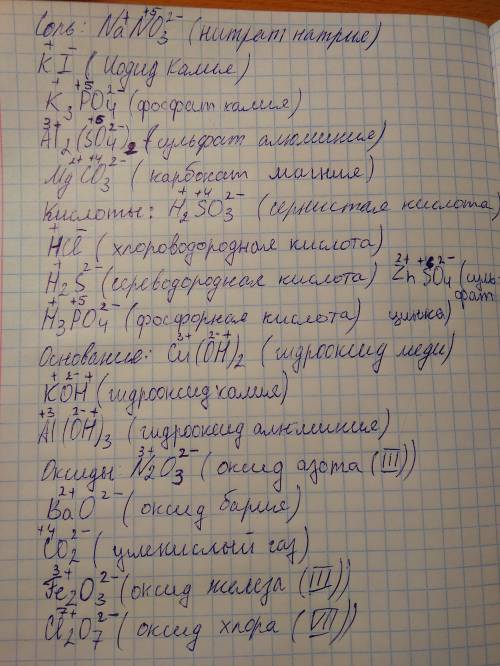 Соль: Na⁺N⁺⁵O₃²⁻ (нитрат натрия)
K⁺I⁻ (иодид калия)
K⁺₃P⁺⁵O₄²⁻ (фосфат калия)
Al³⁺₂(S⁺⁶O₄²⁻)₂ (сульфат алюминия)
Mg²⁺C⁺⁴O₃²⁻ (карбокат магния)
Кислоты: H⁺₂S⁺⁴O₃²⁻ (сернистая кислота)
H⁺Cl⁻ (хлороводородная кислота)
H⁺₂S²⁻ (сереводородная кислота) Zn²⁺S⁺⁶O₄²⁻ (суль-
фат
H⁺₃P⁺⁵O₄²⁻ (фосфорная кислота) цинка)
Основания: Cu³⁺(O²⁻H⁺)₂ (гидрооксид меди)
K⁺O²⁻H⁺ (гидрооксид калия)
Al⁺³(O²⁻H⁺)₃ (гидрооксид алюминия)
Оксиды: N³⁺₂O₃²⁻ (оксид азота (III))
Ba²⁺O²⁻ (оксид бария)
C⁺⁴O₂²⁻ (углекислый газ)
Fe³⁺₂O₃²⁻ (оксид железы (III))
Cl⁷⁺₂O₇²⁻ (оксид хлора (VII))